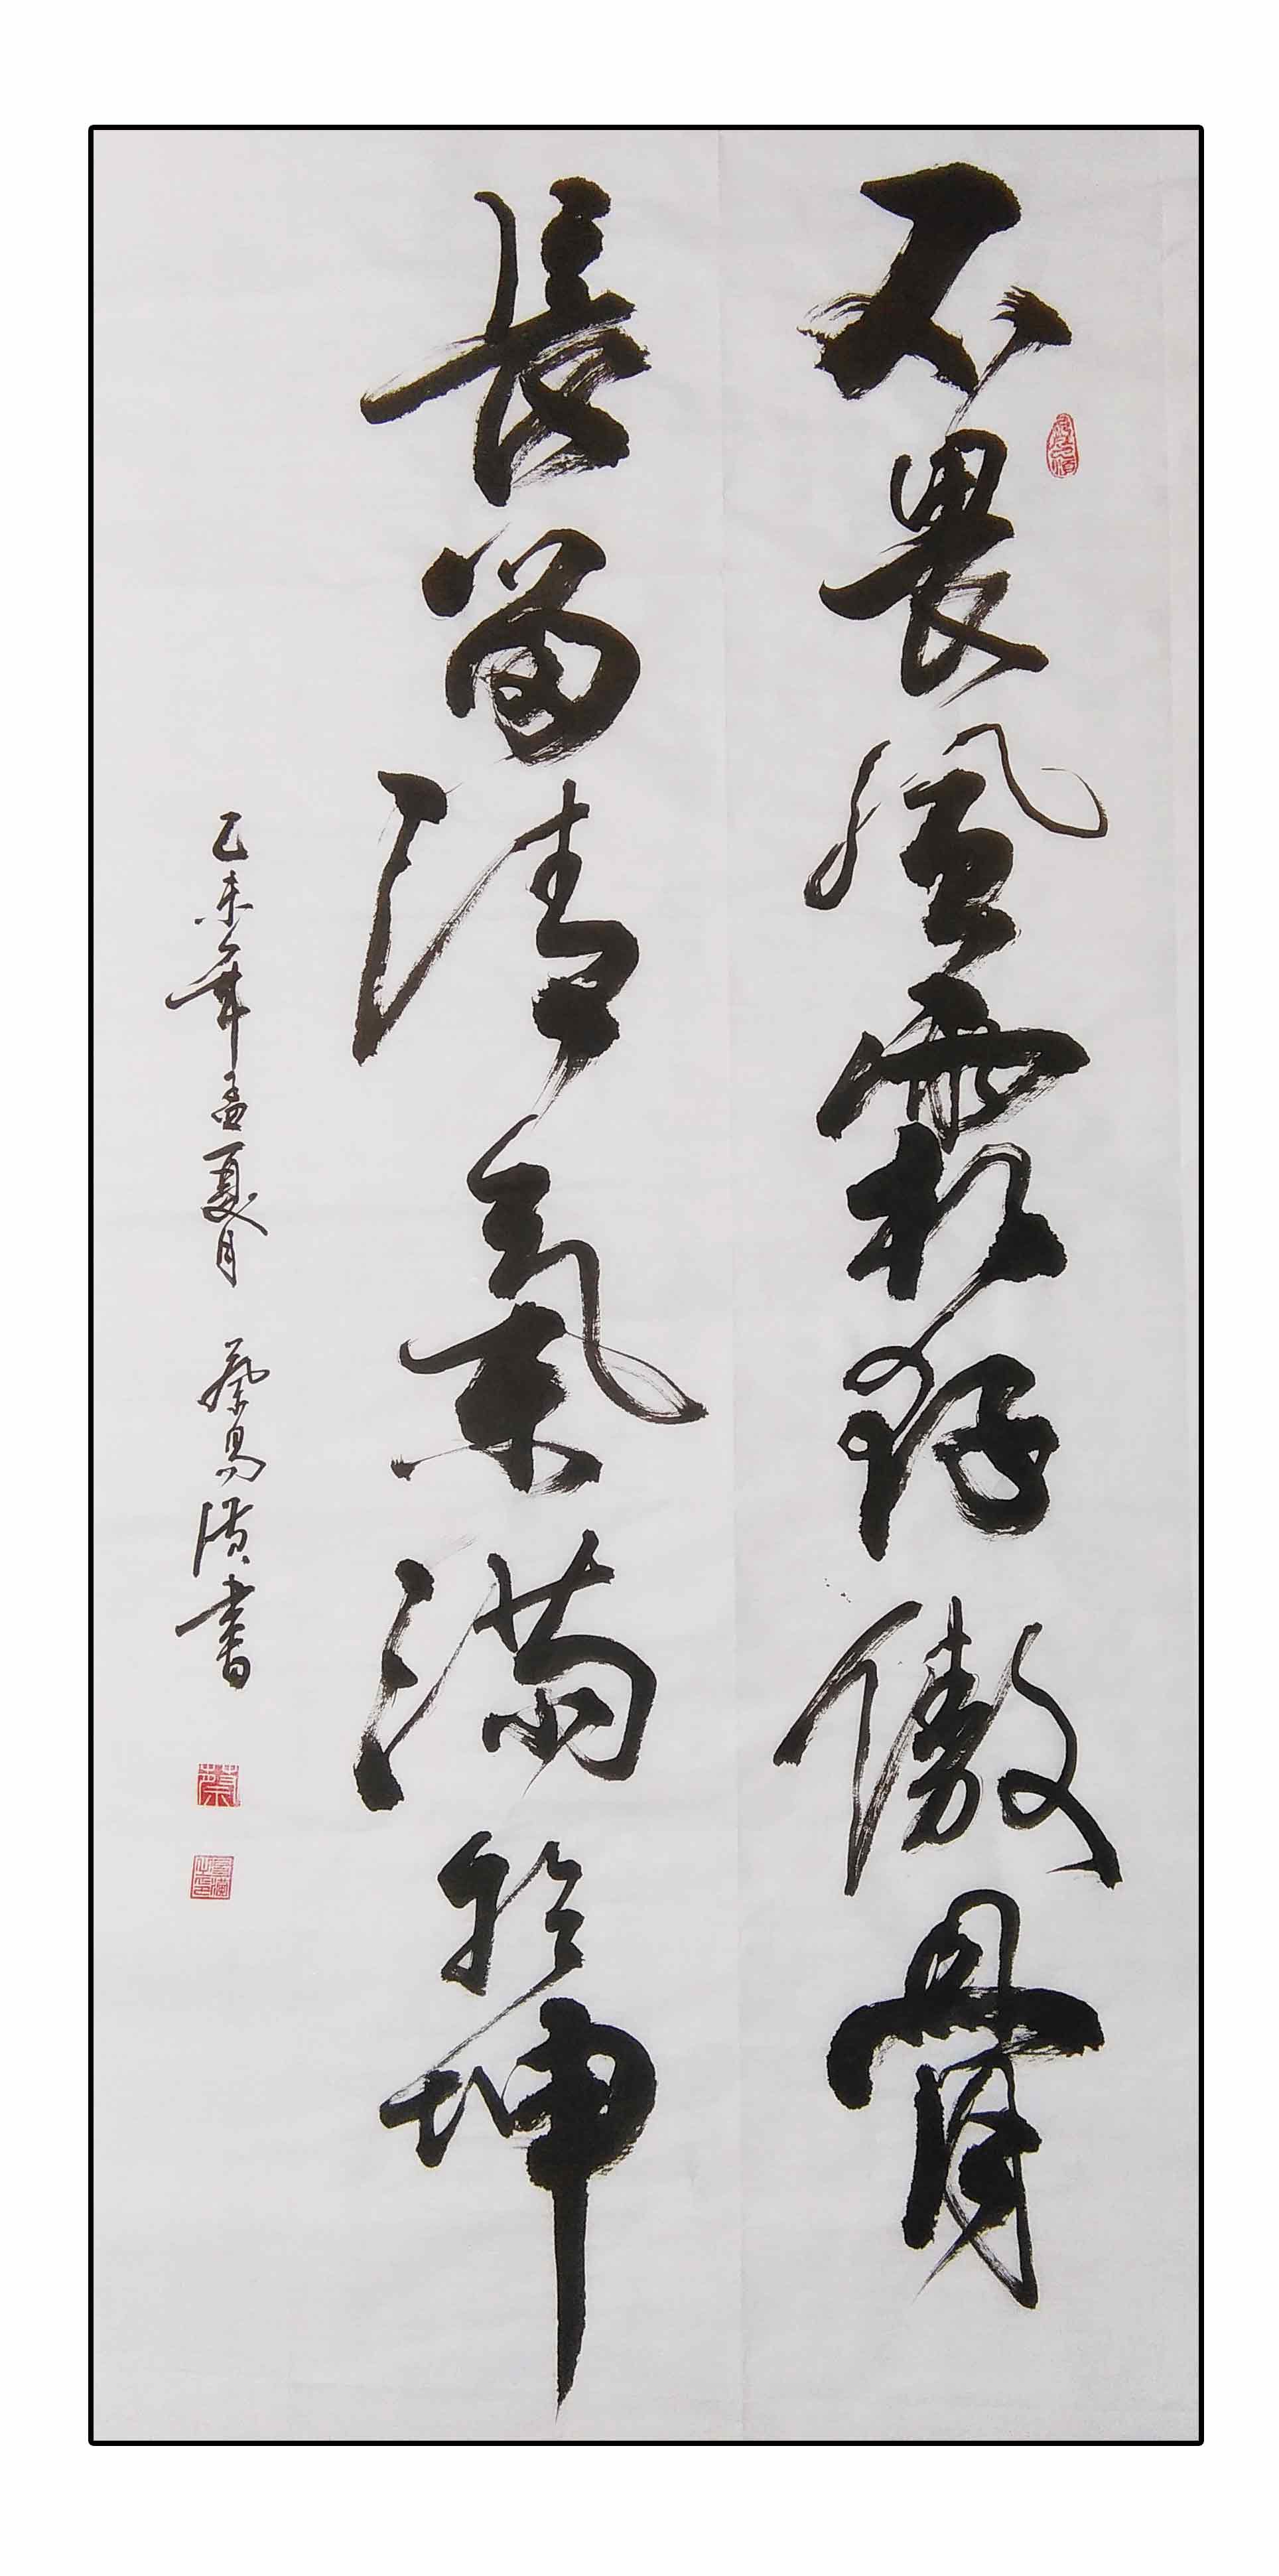 不畏風霜傲骨
長留清氣滿乾坤
乙未年孟夏月 蔡書